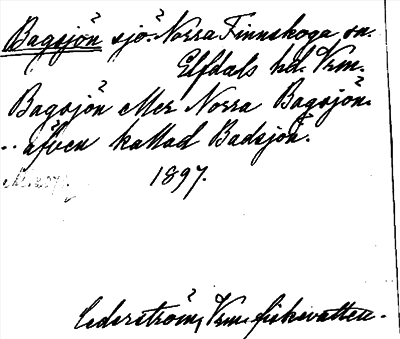 Bagsjön sjö. Norra Finnskoga sn.
Elfdals hd. Vrm.
Bagsjön eller Norra Bagsjön.
.. äfven kallad Badsjön.
1897.
Cederström, Vrm. fiskevatten.